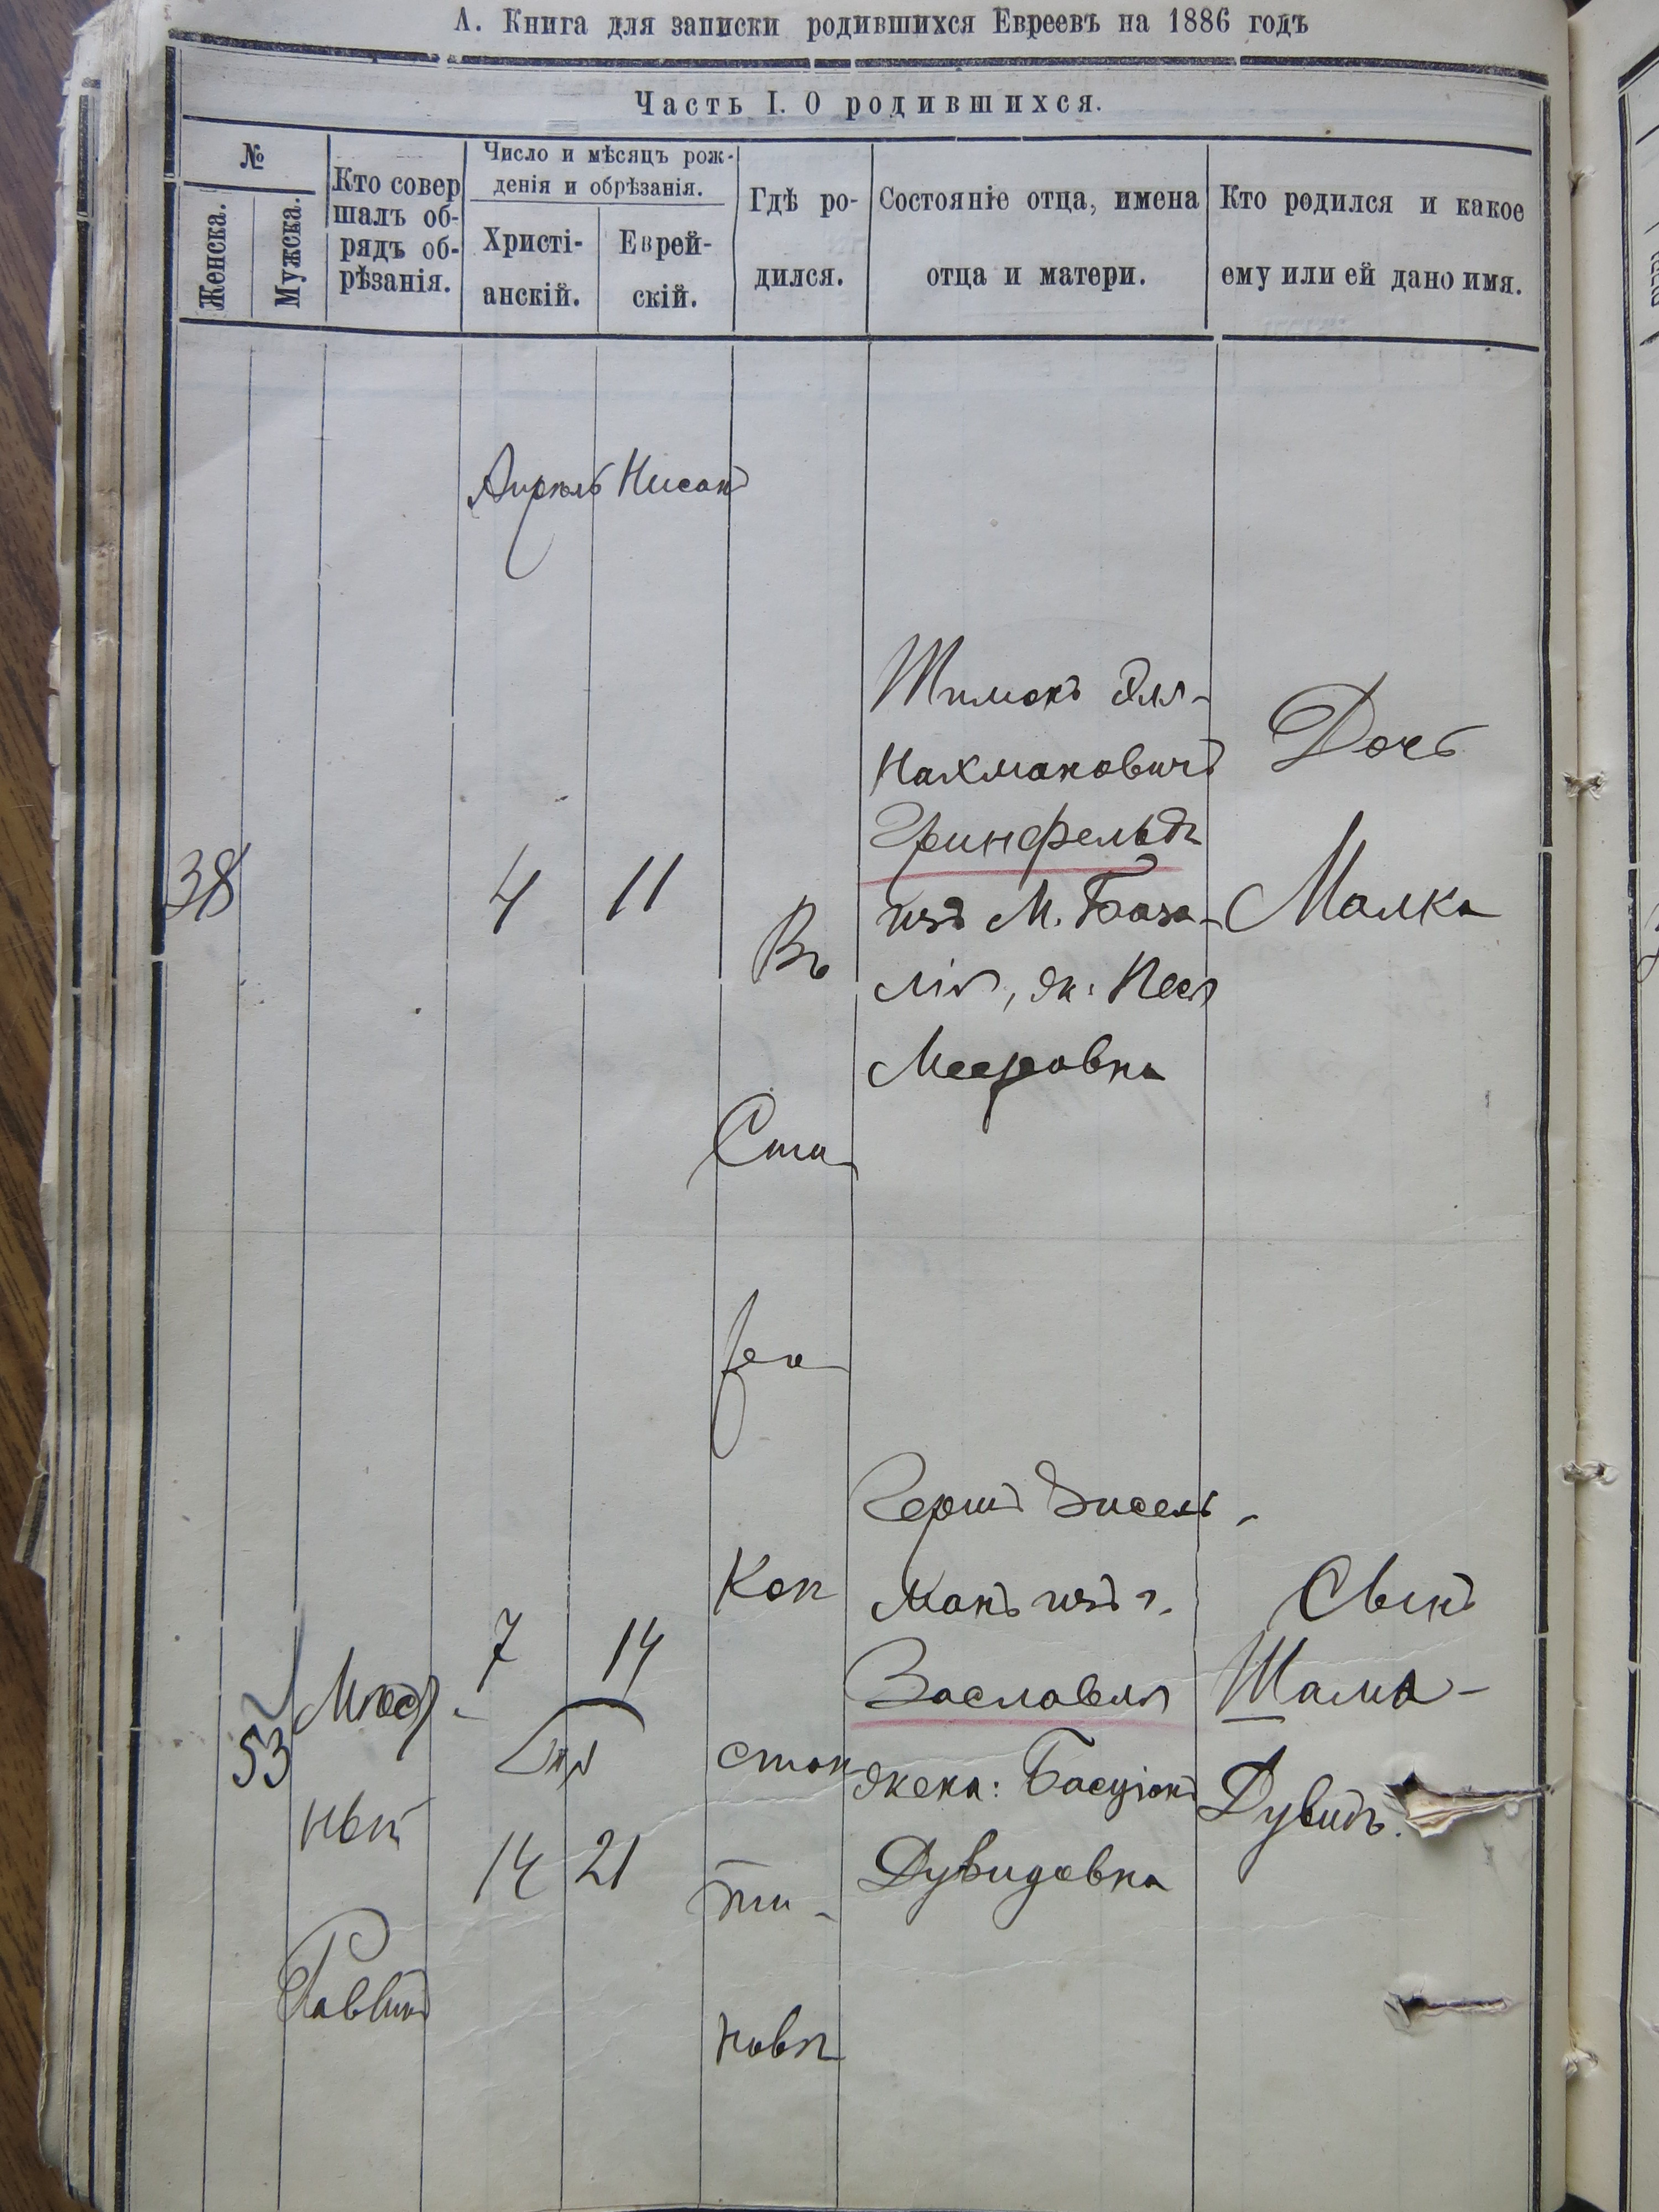 А. Книга для записки родившихся Евреевъ на 1886 годъ
Часть I. О родившихся.
№
Женска.
Мужска.
Кто совер
шалъ об-
рядъ об-
рѣзанія.
Число и мѣсяцъ рож-
денія и обрѣзанія.
Христі-
анскій.
Еврей-
скій.
Гдѣ ро-
дился.
Состояніе отца, имена
отца и матери.
Кто родился и какое
ему или ей дано имя.
Апрѣль Нисанъ
38
4
11
Въ
Ста
ро
Кон
стан
ти-
новѣ
Шимонъ Эля-
Нахмановичъ
Гринфельдъ
изъ М. База-
лія, жк: Песя
Мееровна
Дочь
Малка
53
ный
Раввинъ
7
14
14
21
Гершъ Зисель-
манъ изъ г.
Заславля
жена:
Дувидовна
Сынъ
Шама-
Дувидъ.